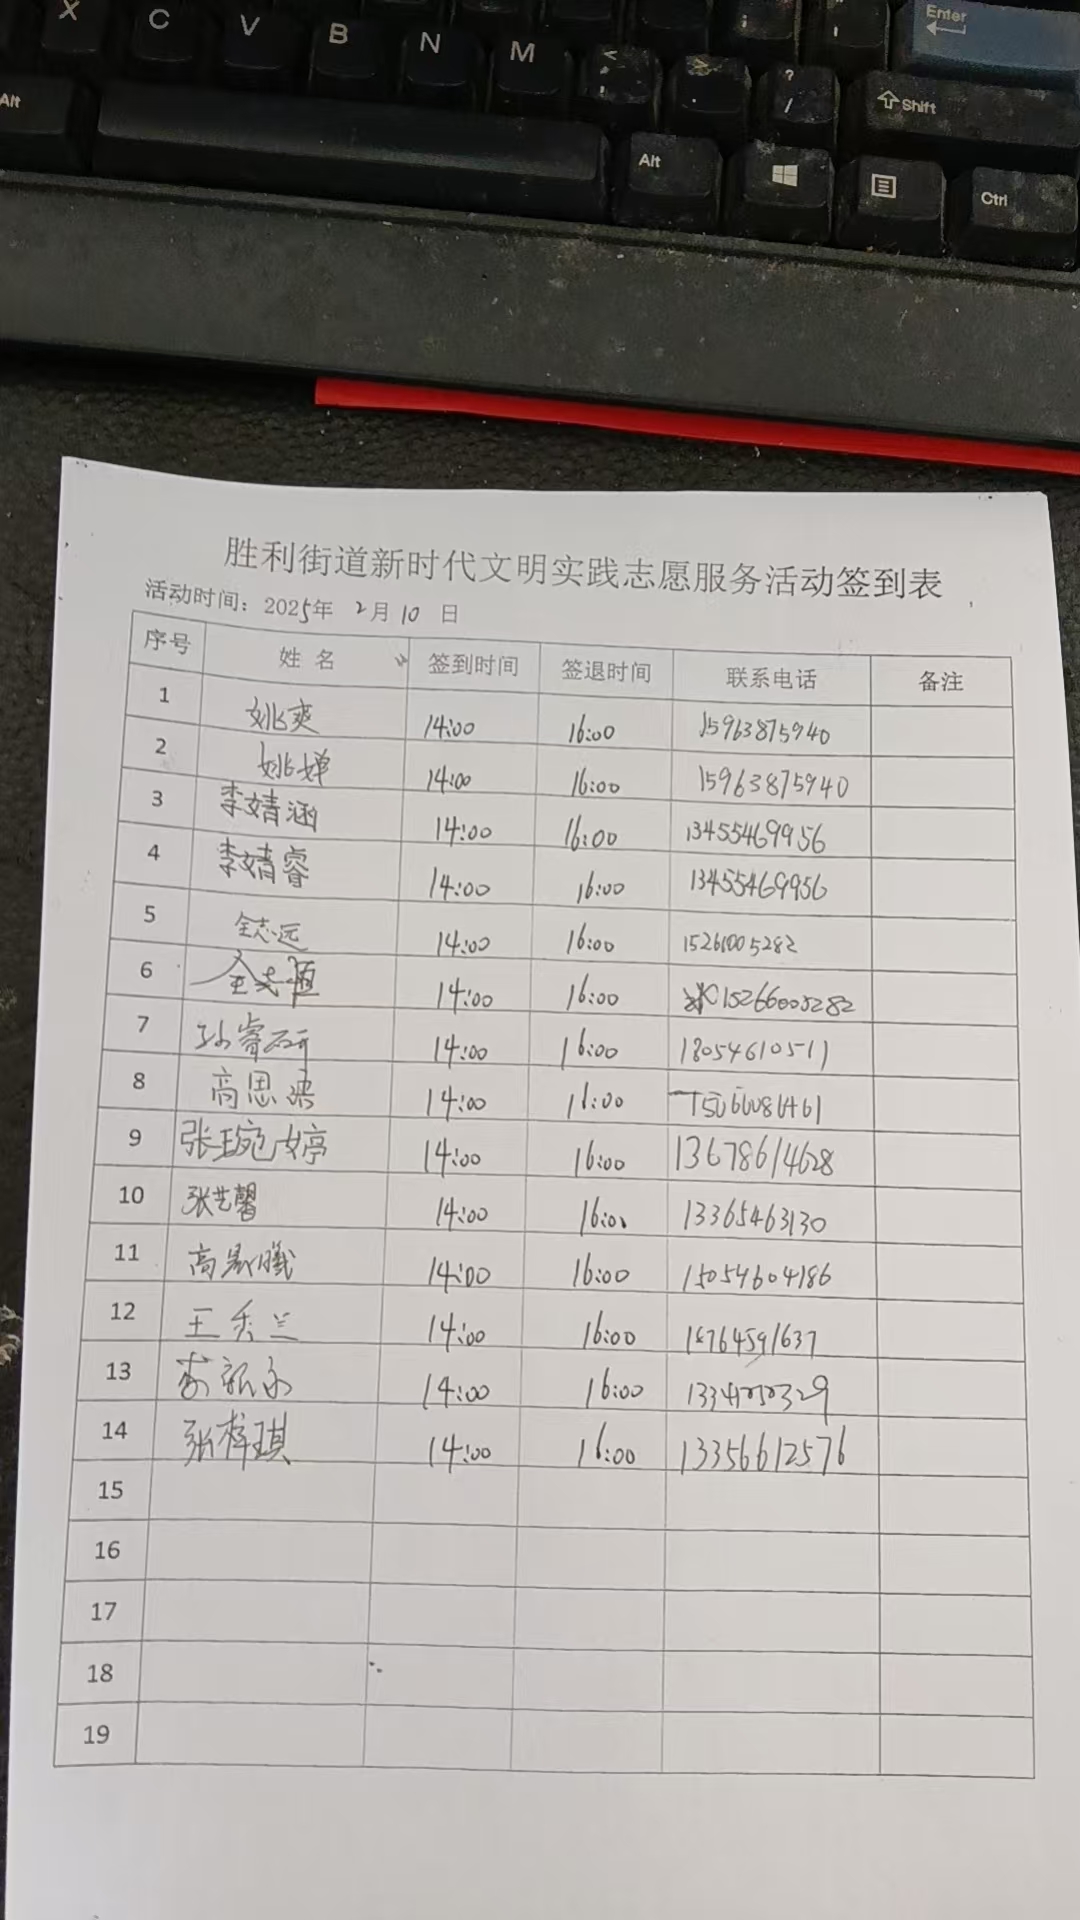 X C V B N M < , > . ? / ; Enter
Alt Shift
Alt Ctrl
胜利街道新时代文明实践志愿服务活动签到表
活动时间：2025年 2月10日
序号 姓名 签到时间 签退时间 联系电话 备注
1 姚爽 14:00 16:00 15963875940
2 姚婵 14:00 16:00 15963875940
3 李婧涵 14:00 16:00 13455469956
4 李婧睿 14:00 16:00 13455469956
5 全志远 14:00 16:00
6 全志恒 14:00 16:00 15266005282
7 孙睿研 14:00 16:00 18054610511
8 高思 14:00 16:00
9 张琬婷 14:00 16:00 13678614628
10 张艺馨 14:00 16:00 13365463130
11 高 曦 14:00 16:00 15054604186
12 王秀兰 14:00 16:00 18764591637
13 14:00 16:00
14 张梓琪 14:00 16:00 13356612576
15
16
17
18
19